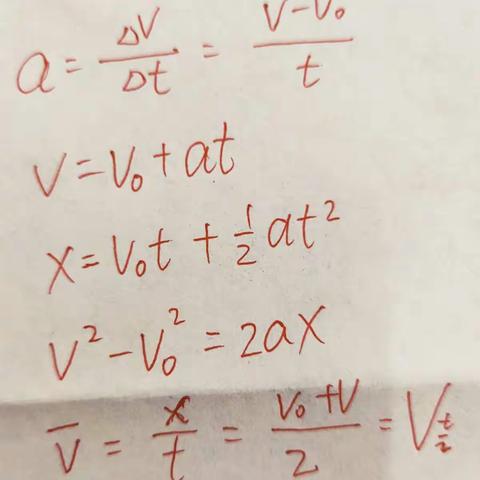 a = ΔV/Δt = V-V₀/t
V = V₀ + at
x = V₀t + ½at²
V² - V₀² = 2ax
V̅ = x/t = V₀+V/2 = V_{t/2}